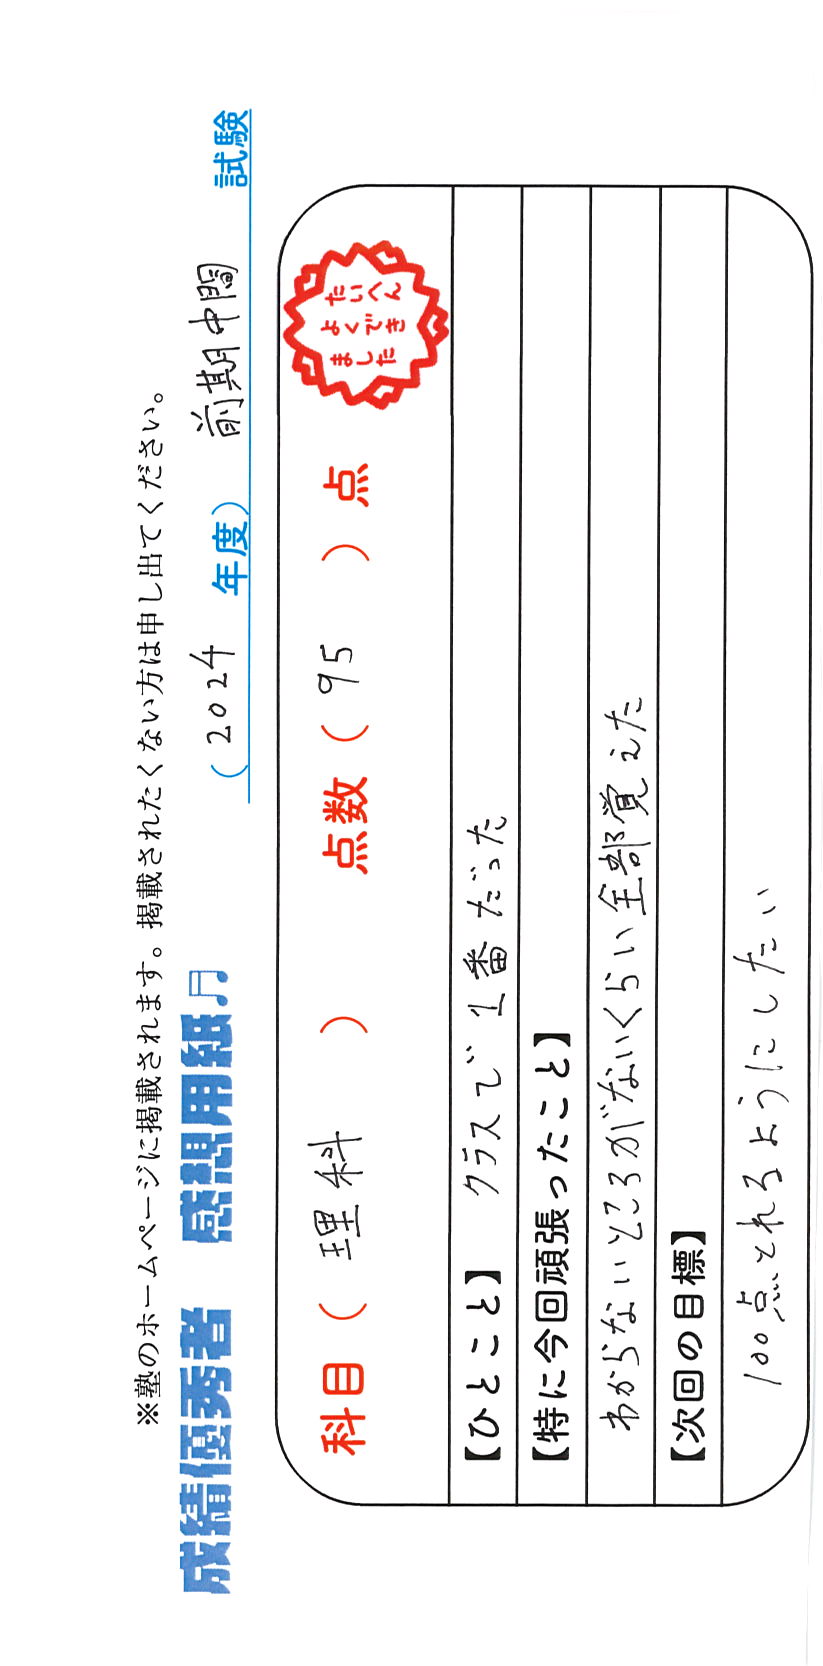 ※塾のホームページに掲載されます。掲載されたくない方は申し出てください。
成績優秀者 感想用紙♬ (2024 年度) 前期中間 試験
科目(理科) 点数(95)点
たいへん
よくでき
ました
【ひとこと】 クラスで1番だった
【特に今回頑張ったこと】
わからないところがないくらい全部覚えた
【次回の目標】
100点とれるようにしたい